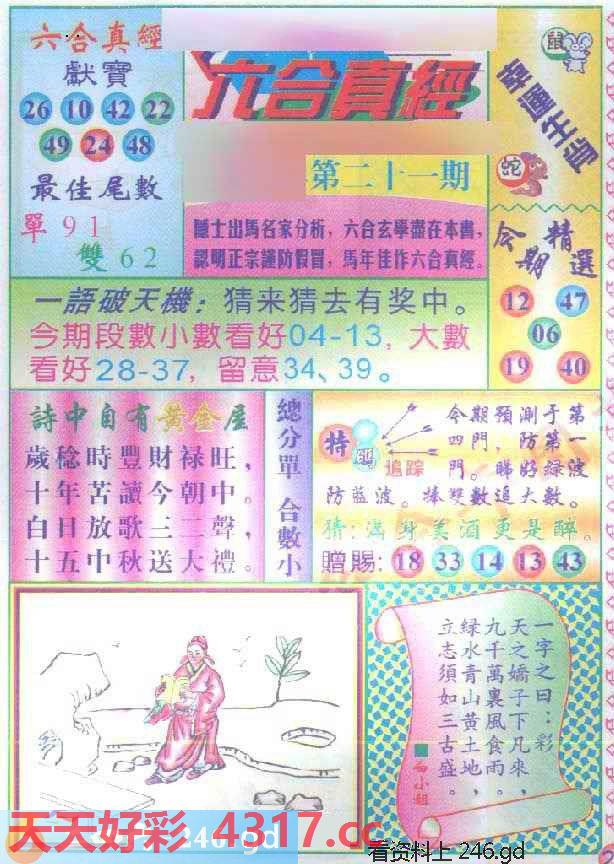 六合真經
獻寶
26 10 42 22
49 24 48
最佳尾數
單 9 1
雙 6 2
六合真經
第二十一期
隱士出馬名家分析，六合玄學盡在本書，
認明正宗謹防假冒，馬年佳作六合真經。
鼠
幸運生肖
蛇
今期精選
12 47
06
19 40
一語破天機：猜来猜去有奖中。
今期段數小數看好04-13，大數
看好28-37，留意34、39。
詩中自有黃金屋
歲稔時豐財禄旺，
十年苦讀今朝中。
白日放歌三二聲，
十五中秋送大禮。
總分單 合數小
特
追踪
今期預測于第
四門，防第一
門。睇好綠波
防藍波。捧雙數追大數。
猜：滿身美酒更是醉。
贈賜：18 33 14 13 43
一字之曰：彩
天之嬌子下凡来，
九千萬裏風食雨。
绿水青山黄土地，
立志須如三古盛。
小姐
天天好彩 4317.cc
246.gd
看资料上 246.gd